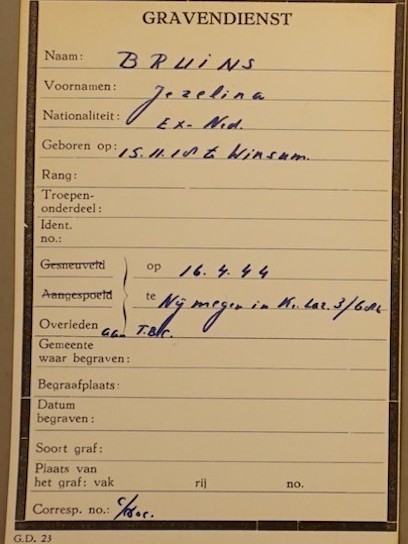 GRAVENDIENST
Naam: BRUINS
Voornamen: Jezelina
Nationaliteit: Ex-Ned.
Geboren op: 15.11.18 te Winsum.
Rang:
Troepen-
onderdeel:
Ident.
no.:
Gesneuveld op 16.4.44
Aangespoeld te Nijmegen in Kr. Laz. 3/
Overleden aan T.B.C.
Gemeente
waar begraven:
Begraafplaats:
Datum
begraven:
Soort graf:
Plaats van
het graf: vak rij no.
Corresp. no.:
G.D. 23